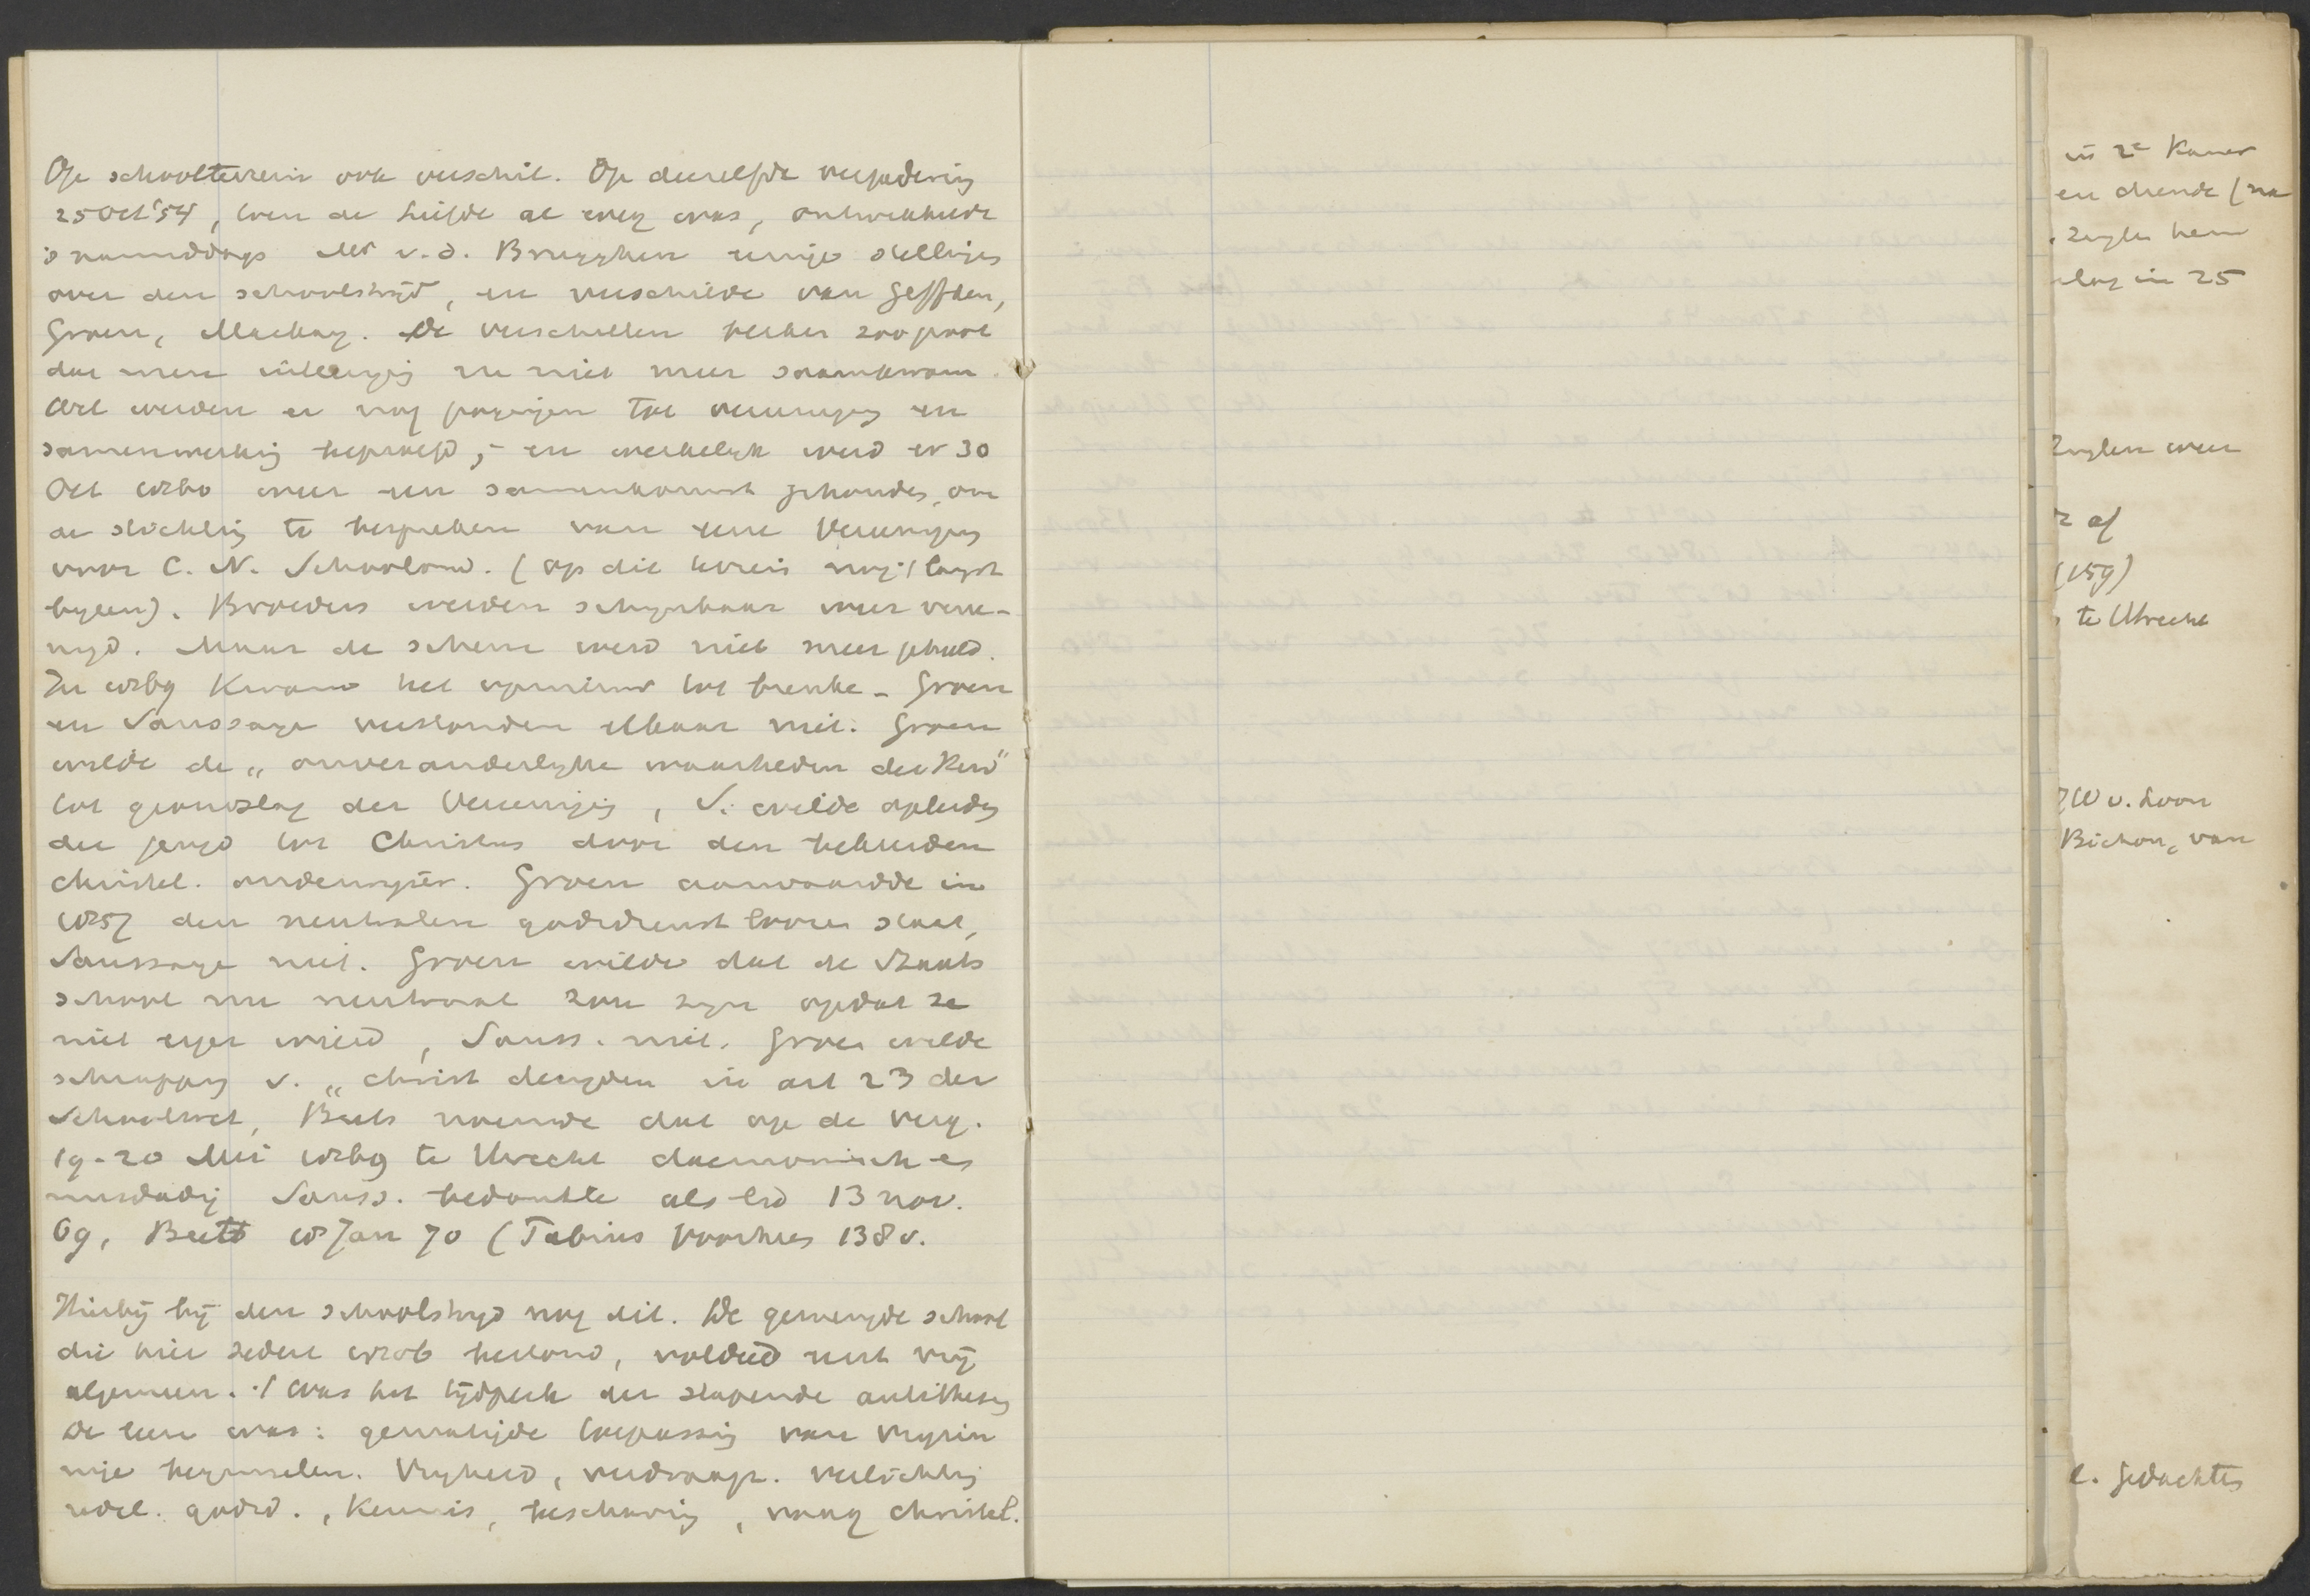 Op schoolterrein ook verschil. Op dezelfde vergadering
25 Oct '54, toen de Liefde al weg was, ontwikkelde
's namiddags Mr v.d. Brugghen eenige stellingen
over den schoolstrijd, en verschilde van Geffken,
Groen, Mackay. De verschillen bleken zoo groot
dat men uiteenging en niet meer samenkwam.
Wel werden er nog pogingen tot vereeniging en
samenwerking beproefd, en werkelijk werd er 30
Oct 1860 weer een samenkomst gehouden, om
de stichting te bespreken van eene Vereeniging
voor C. N. Schoolond. (op dit terrein nog 't langst
bijeen). Broeders werden schijnbaar weer veree-
nigd. Maar de scheur werd niet meer geheeld.
In 1869 kwam het opnieuw tot breuke - Groen
en Saussaye verstonden elkaar niet. Groen
wilde de „onveranderlijke waarheden der Kerk"
tot grondslag der Vereeniging, S. wilde opleiding
der jeugd tot Christus door den bekeerden
christel. onderwijzer. Groen aanvaardde in
1857 den neutralen godsdienstloozen staat,
Saussaye niet. Groen wilde dat de Staats
school nu neutraal zou zijn opdat ze
niet erger wierd, Sauss. niet. Groen wilde
schrapping v. „christ deugden in art 23 der
Schoolwet, Beets noemde dat op de verg.
19-20 Mei 1869 te Utrecht daemonisch en
misdadig Sauss. bedankte als lid 13 nov.
69, Beets 18 Jan 70 (Tabinus Voorhees 138 v.
Hierbij bij den schoolstrijd nog dit. De gemengde school
die hier sedert 1806 bestond, voldeed eerst vrij
algemeen. 't Was het tijdperk der slapende antithesen
De leer was: gematigde toepassing van vrijzin
nige beginselen. Vrijheid, verdraagz. verlichting
redel. godsd., kennis, beschaving, vaag christel.
in 2e Kamer
en diende (na
Zuylen hem
slag in 25
Zuylen weer
r af
(159)
te Utrecht
JW v. Loon
Bichon, van
l. Gedachten